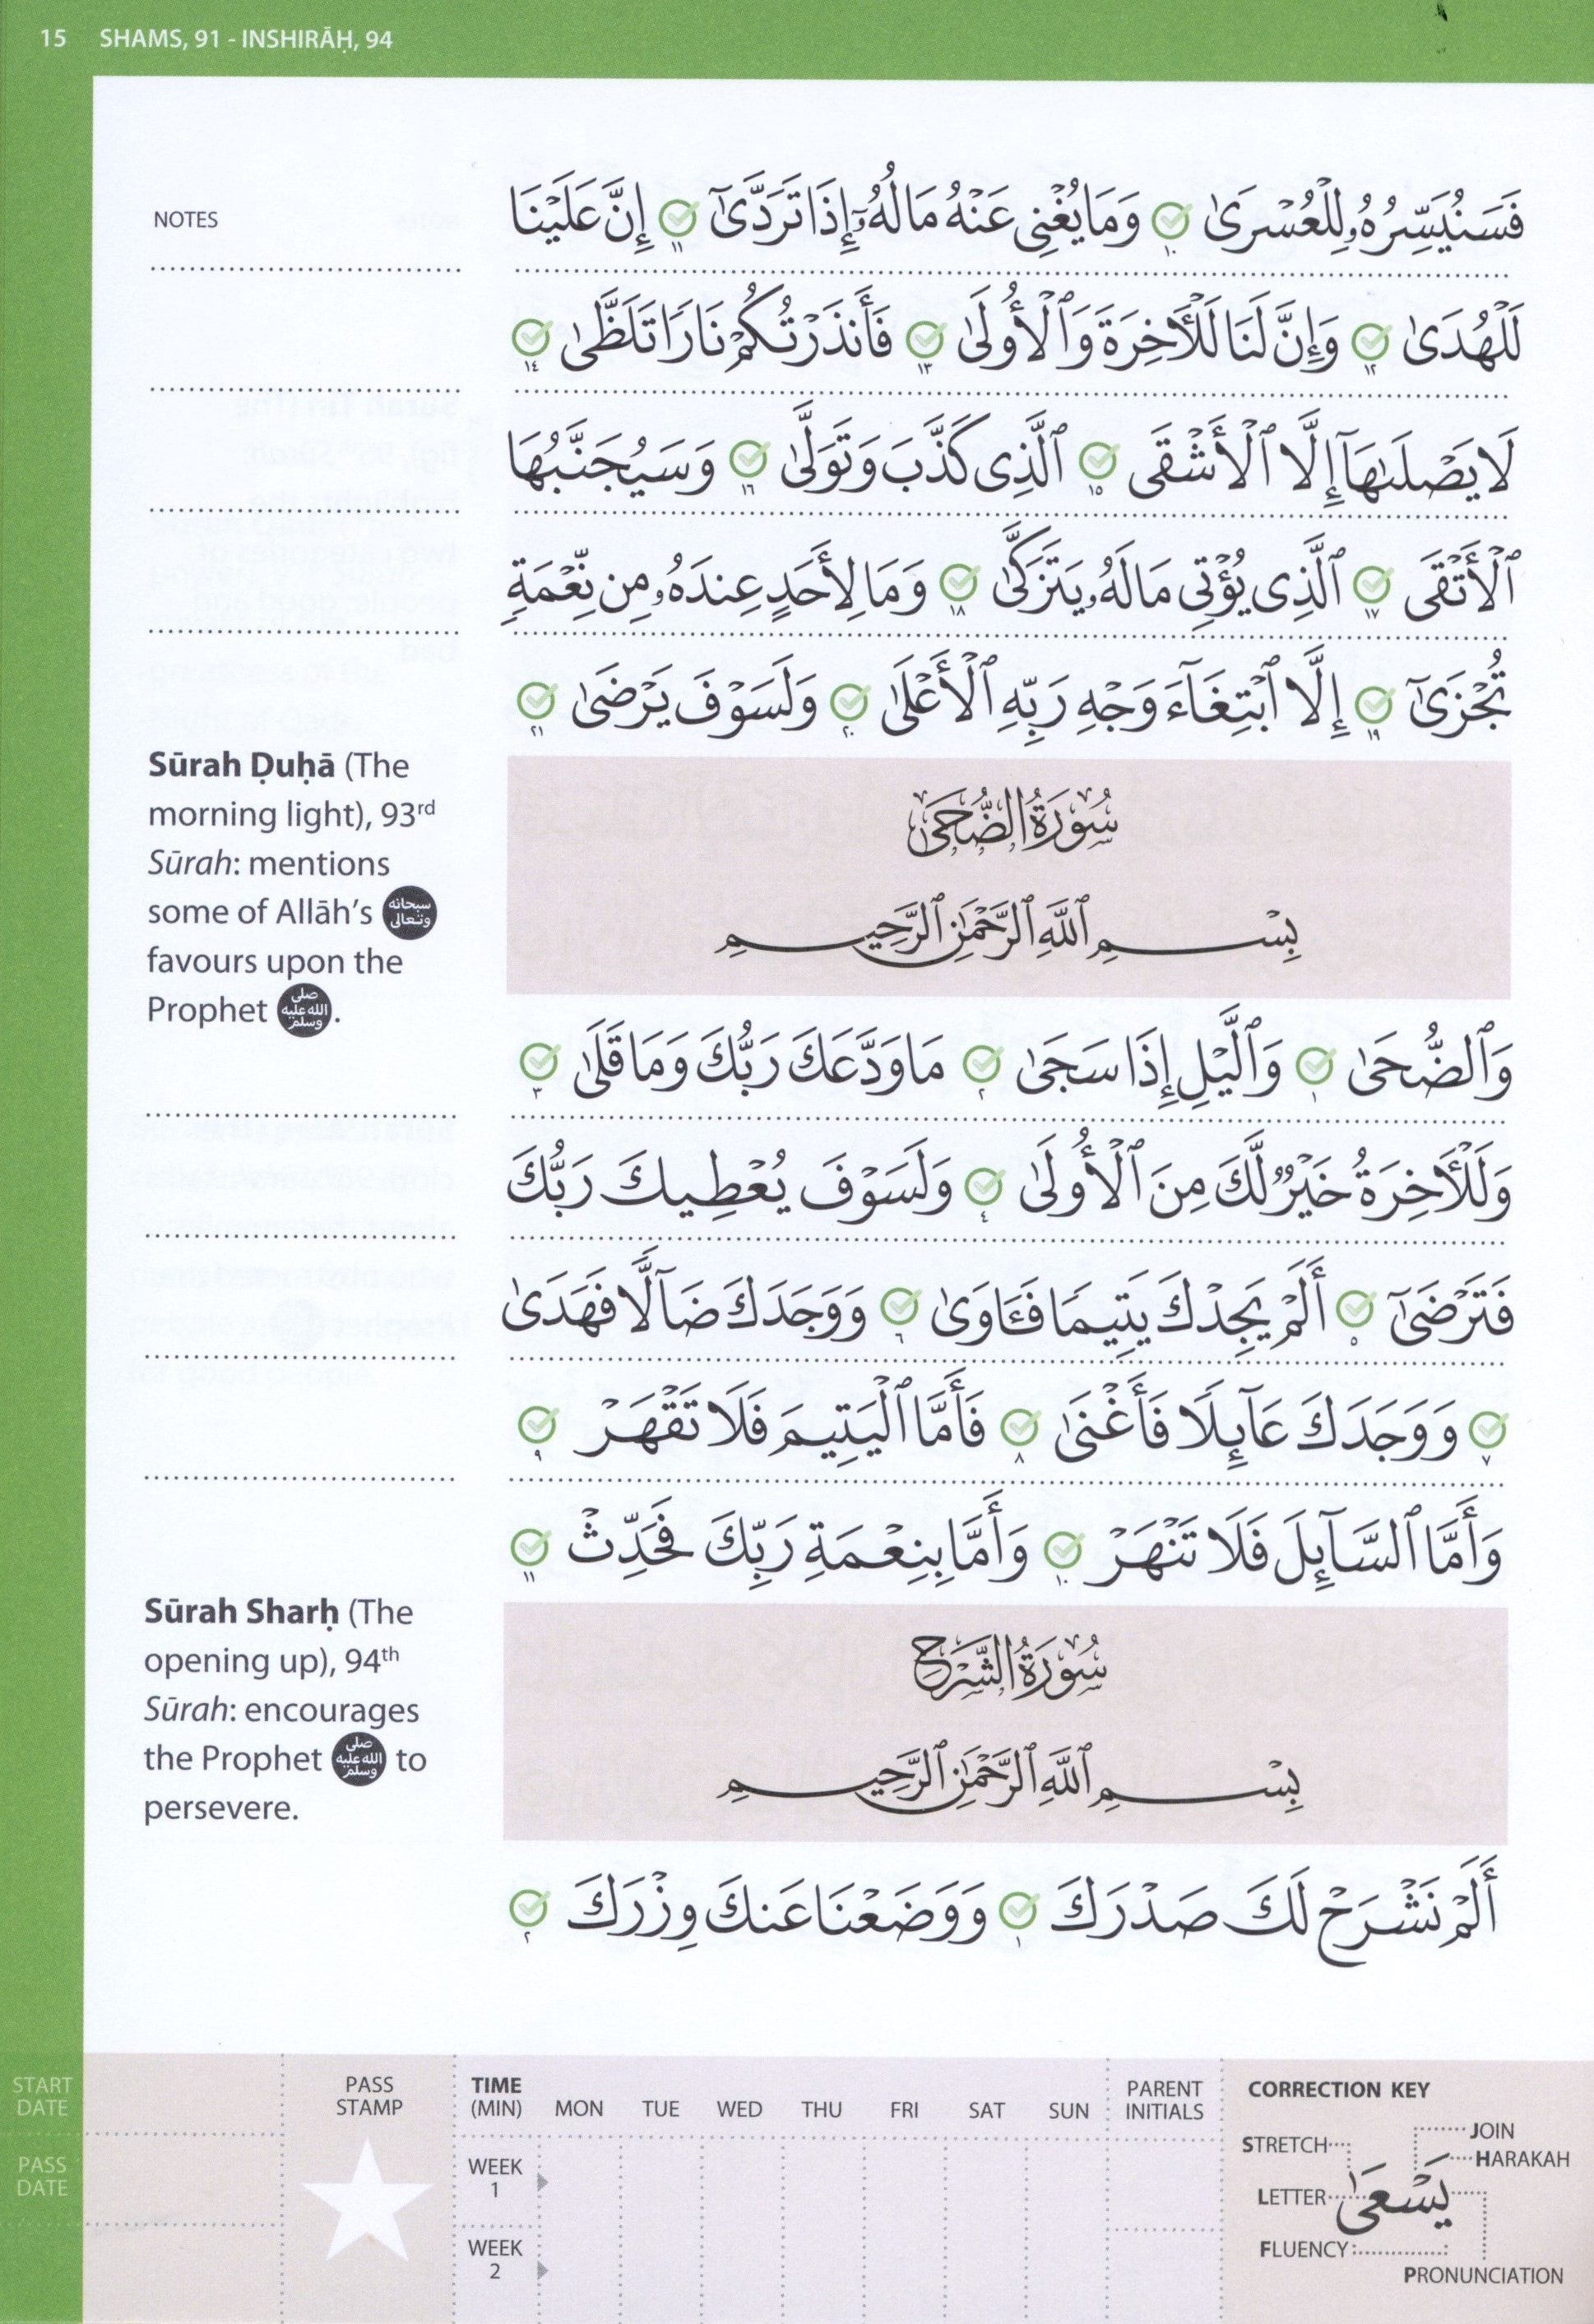 15 SHAMS, 91 - INSHIRĀḤ, 94
NOTES
فَسَنُيَسِّرُهُۥ لِلْعُسْرَىٰ ١٠ وَمَا يُغْنِى عَنْهُ مَالُهُۥٓ إِذَا تَرَدَّىٰٓ ١١ إِنَّ عَلَيْنَا
لَلْهُدَىٰ ١٢ وَإِنَّ لَنَا لَلْـَٔاخِرَةَ وَٱلْأُولَىٰ ١٣ فَأَنذَرْتُكُمْ نَارًا تَلَظَّىٰ ١٤
لَا يَصْلَىٰهَآ إِلَّا ٱلْأَشْقَى ١٥ ٱلَّذِى كَذَّبَ وَتَوَلَّىٰ ١٦ وَسَيُجَنَّبُهَا
ٱلْأَتْقَى ١٧ ٱلَّذِى يُؤْتِى مَالَهُۥ يَتَزَكَّىٰ ١٨ وَمَا لِأَحَدٍ عِندَهُۥ مِن نِّعْمَةٍ
تُجْزَىٰٓ ١٩ إِلَّا ٱبْتِغَآءَ وَجْهِ رَبِّهِ ٱلْأَعْلَىٰ ٢٠ وَلَسَوْفَ يَرْضَىٰ ٢١
Sūrah Ḍuḥā (The
morning light), 93rd
Sūrah: mentions
some of Allāh's سبحانه وتعالى
favours upon the
Prophet صلى الله عليه وسلم.
سُورَةُ الضُّحَىٰ
بِسْمِ ٱللَّهِ ٱلرَّحْمَٰنِ ٱلرَّحِيمِ
وَٱلضُّحَىٰ ١ وَٱلَّيْلِ إِذَا سَجَىٰ ٢ مَا وَدَّعَكَ رَبُّكَ وَمَا قَلَىٰ ٣
وَلَلْـَٔاخِرَةُ خَيْرٌ لَّكَ مِنَ ٱلْأُولَىٰ ٤ وَلَسَوْفَ يُعْطِيكَ رَبُّكَ
فَتَرْضَىٰٓ ٥ أَلَمْ يَجِدْكَ يَتِيمًا فَـَٔاوَىٰ ٦ وَوَجَدَكَ ضَآلًّا فَهَدَىٰ
٧ وَوَجَدَكَ عَآئِلًا فَأَغْنَىٰ ٨ فَأَمَّا ٱلْيَتِيمَ فَلَا تَقْهَرْ ٩
وَأَمَّا ٱلسَّآئِلَ فَلَا تَنْهَرْ ١٠ وَأَمَّا بِنِعْمَةِ رَبِّكَ فَحَدِّثْ ١١
Sūrah Sharḥ (The
opening up), 94th
Sūrah: encourages
the Prophet صلى الله عليه وسلم to
persevere.
سُورَةُ الشَّرْحِ
بِسْمِ ٱللَّهِ ٱلرَّحْمَٰنِ ٱلرَّحِيمِ
أَلَمْ نَشْرَحْ لَكَ صَدْرَكَ ١ وَوَضَعْنَا عَنكَ وِزْرَكَ ٢
START
DATE
PASS
DATE
PASS
STAMP
TIME
(MIN) MON TUE WED THU FRI SAT SUN
WEEK
1
WEEK
2
PARENT
INITIALS
CORRECTION KEY
STRETCH
JOIN
HARAKAH
LETTER
يَسْعَىٰ
FLUENCY
PRONUNCIATION